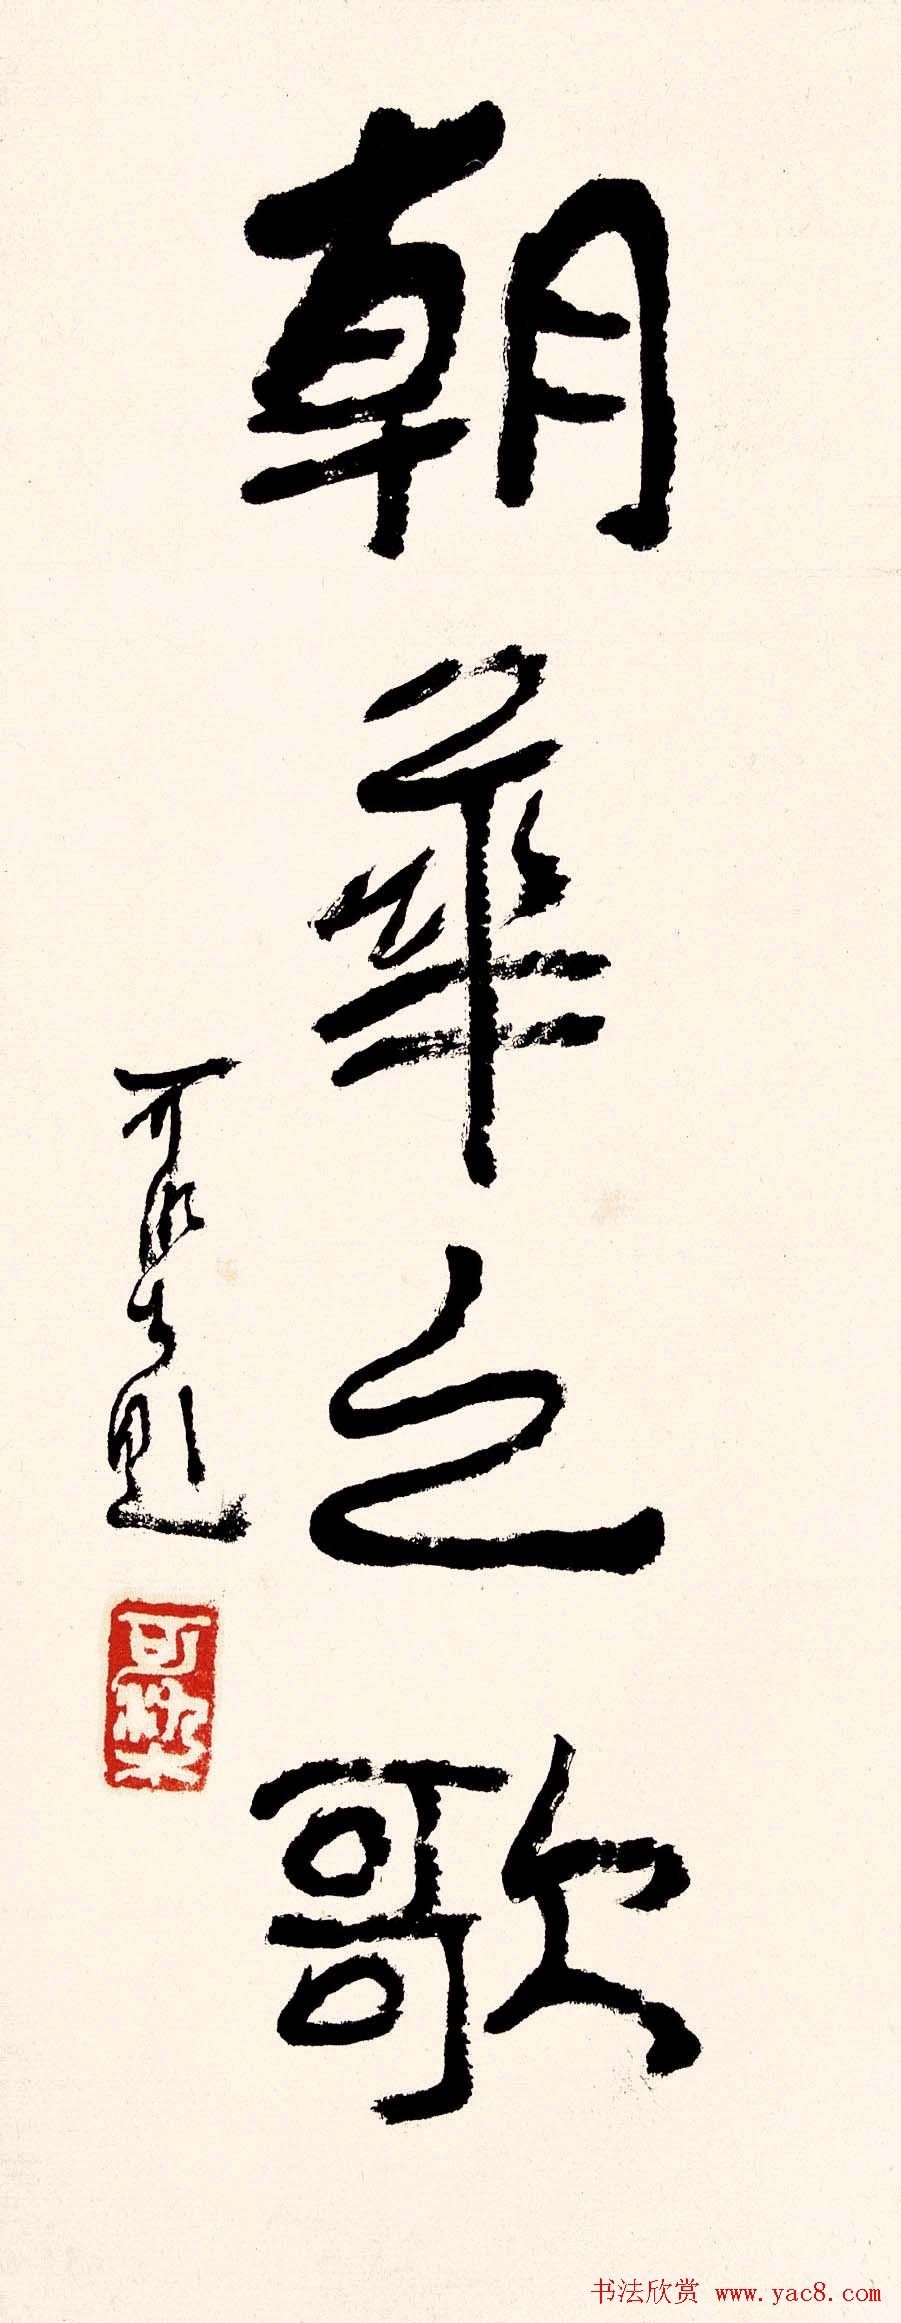 朝華之歌
可染題
可染
书法欣赏 www.yac8.com